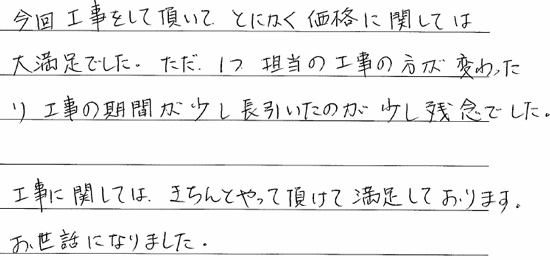 今回工事をして頂いて とにかく価格に関しては
大満足でした。ただ、1つ 担当の工事の方が変わった
り 工事の期間が少し長引いたのが少し残念でした。
工事に関しては、きちんとやって頂けて満足しております。
お世話になりました。